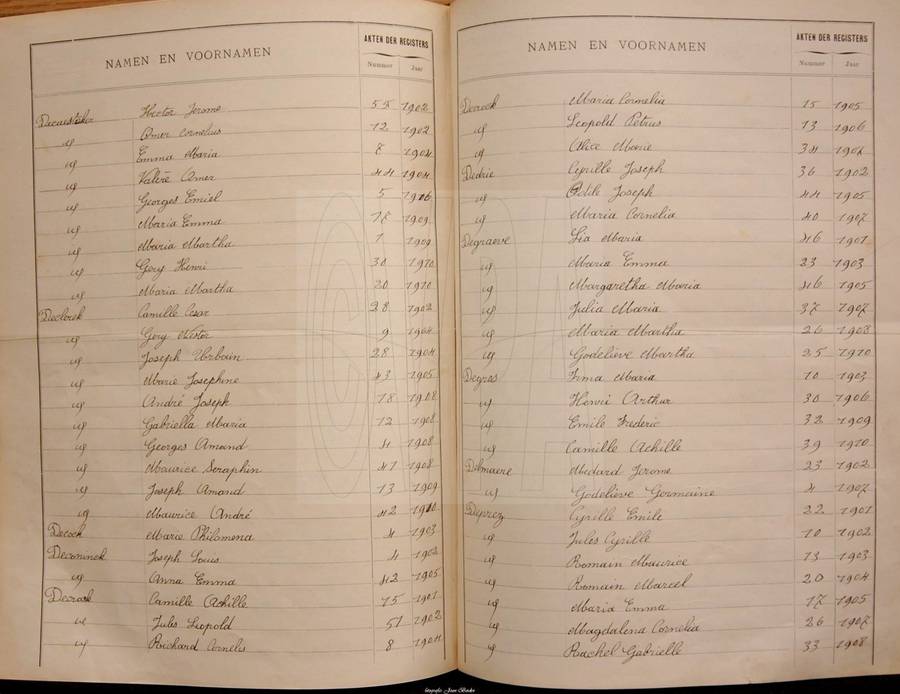 NAMEN EN VOORNAMEN AKTEN DER REGISTERS
Nummer Jaar
Decaesteker Hector Jerome 55 1902
id Omer Cornelius 12 1902
id Emma Maria 8 1904
id Valère Omer 44 1904
id Georges Emiel 5 1906
id Maria Emma 17 1909
id Maria Martha 1 1909
id Gery Henri 30 1910
id Maria Martha 20 1910
Declerck Camille Cesar 28 1902
id Gery Nestor 9 1904
id Joseph Urbain 28 1904
id Marie Josephine 43 1905
id André Joseph 18 1908
id Gabriella Maria 12 1908
id Georges Amand 4 1908
id Maurice Seraphin 47 1908
id Joseph Amand 13 1909
id Maurice André 42 1910
Decock Marie Philomena 4 1903
Deconinck Joseph Louis 4 1902
id Anna Emma 42 1905
Decrock Camille Achille 15 1901
id Jules Leopold 51 1902
id Richard Cornelis 8 1904
NAMEN EN VOORNAMEN AKTEN DER REGISTERS
Nummer Jaar
Decrock Maria Cornelia 15 1905
id Leopold Petrus 13 1906
id Alice Marie 34 1907
Dedrie Cyrille Joseph 36 1902
id Joseph 44 1905
id Maria Cornelia 40 1907
Degraeve Lia Maria 46 1901
id Maria Emma 23 1903
id Margaretha Maria 46 1905
id Julia Maria 37 1907
id Maria Martha 26 1908
id Godelieve Martha 25 1910
Degros Irma Maria 10 1903
id Henri Arthur 30 1906
id Emile Frederic 32 1909
id Camille Achille 39 1910
Delmaere Medard Jerome 23 1902
id Godelieve Germaine 4 1907
Deprez Cyrille Emile 22 1901
id Jules Cyrille 10 1902
id Romain Maurice 13 1903
id Romain Marcel 20 1904
id Maria Emma 17 1905
id Magdalena Cornelia 26 1907
id Rachel Gabrielle 33 1908